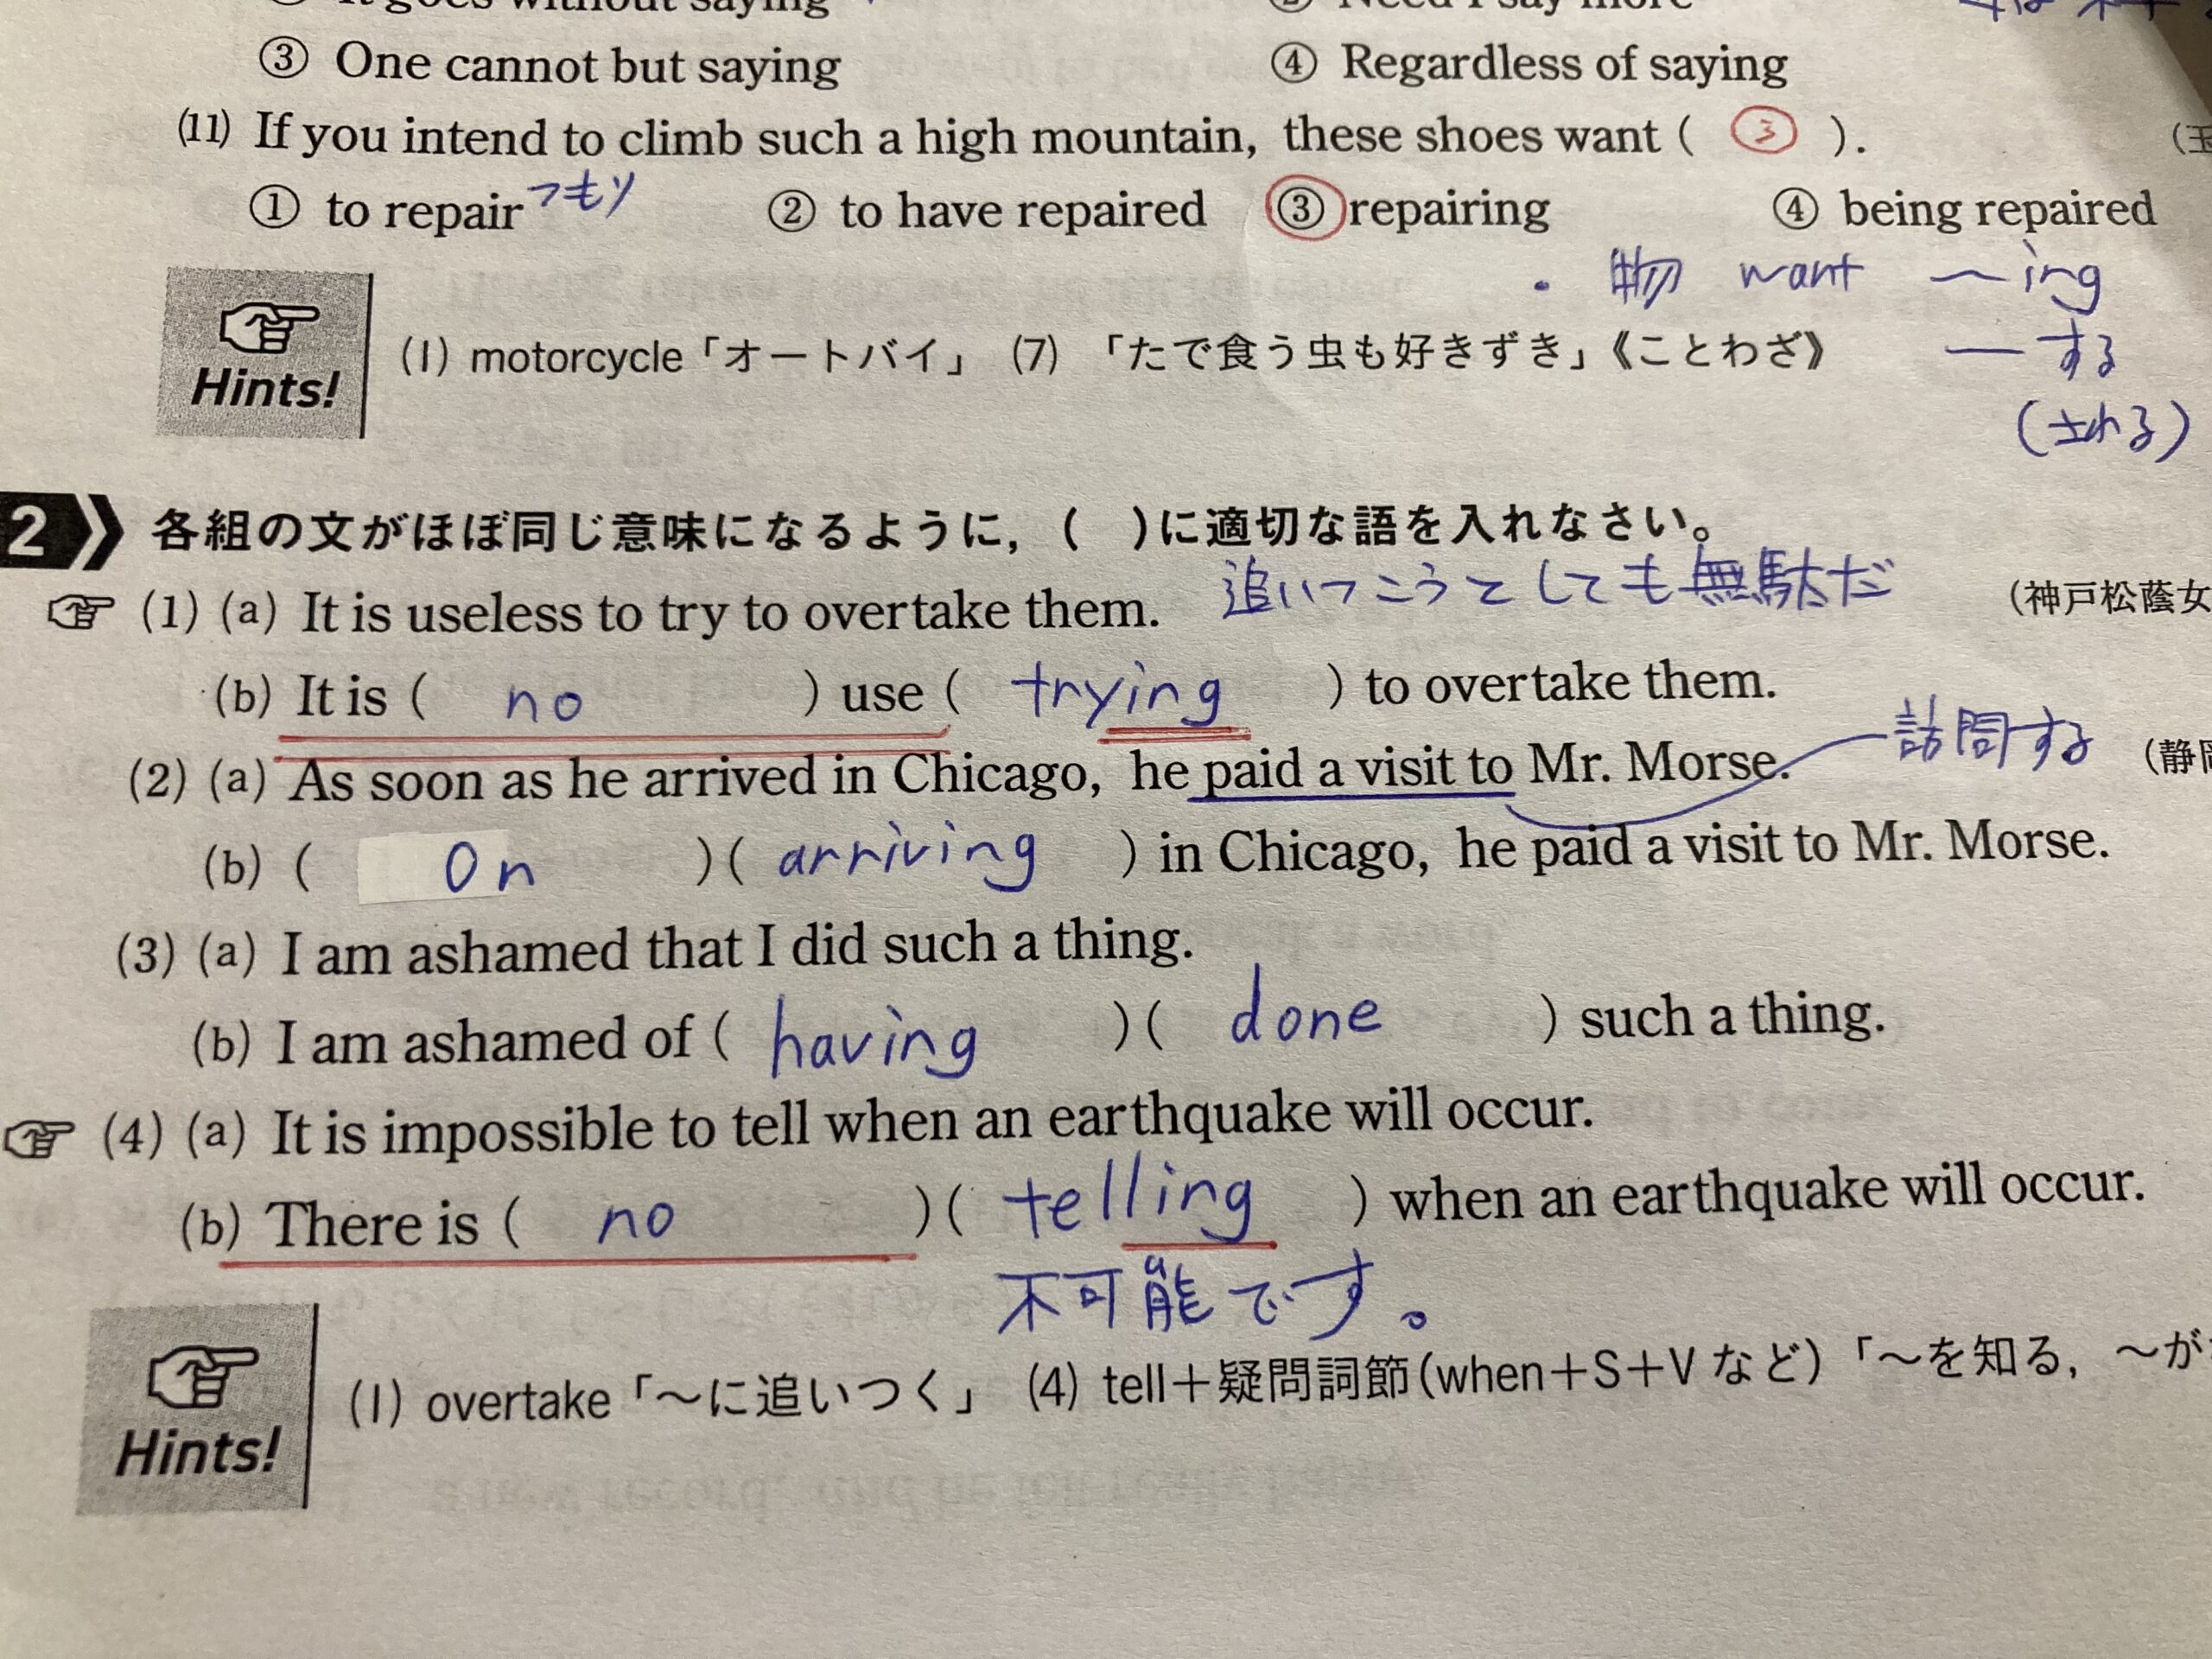 It goes without saying
② Need I say more
③ One cannot but saying ④ Regardless of saying
(11) If you intend to climb such a high mountain, these shoes want ( ③ ).
① to repair つもり ② to have repaired ③ repairing ④ being repaired
・物 want ～ing
Hints! (1) motorcycle「オートバイ」 (7) 「たで食う虫も好きずき」《ことわざ》
― する
(される)
2 各組の文がほぼ同じ意味になるように,( )に適切な語を入れなさい。
追いつこうとしても無駄だ
(1) (a) It is useless to try to overtake them. (神戸松蔭女
(b) It is ( no ) use ( trying ) to overtake them.
訪問する
(2) (a) As soon as he arrived in Chicago, he paid a visit to Mr. Morse. (静岡
(b) ( On )( arriving ) in Chicago, he paid a visit to Mr. Morse.
(3) (a) I am ashamed that I did such a thing.
(b) I am ashamed of ( having )( done ) such a thing.
(4) (a) It is impossible to tell when an earthquake will occur.
(b) There is ( no )( telling ) when an earthquake will occur.
不可能です。
Hints! (1) overtake「～に追いつく」 (4) tell＋疑問詞節(when＋S＋V など)「～を知る, ～が